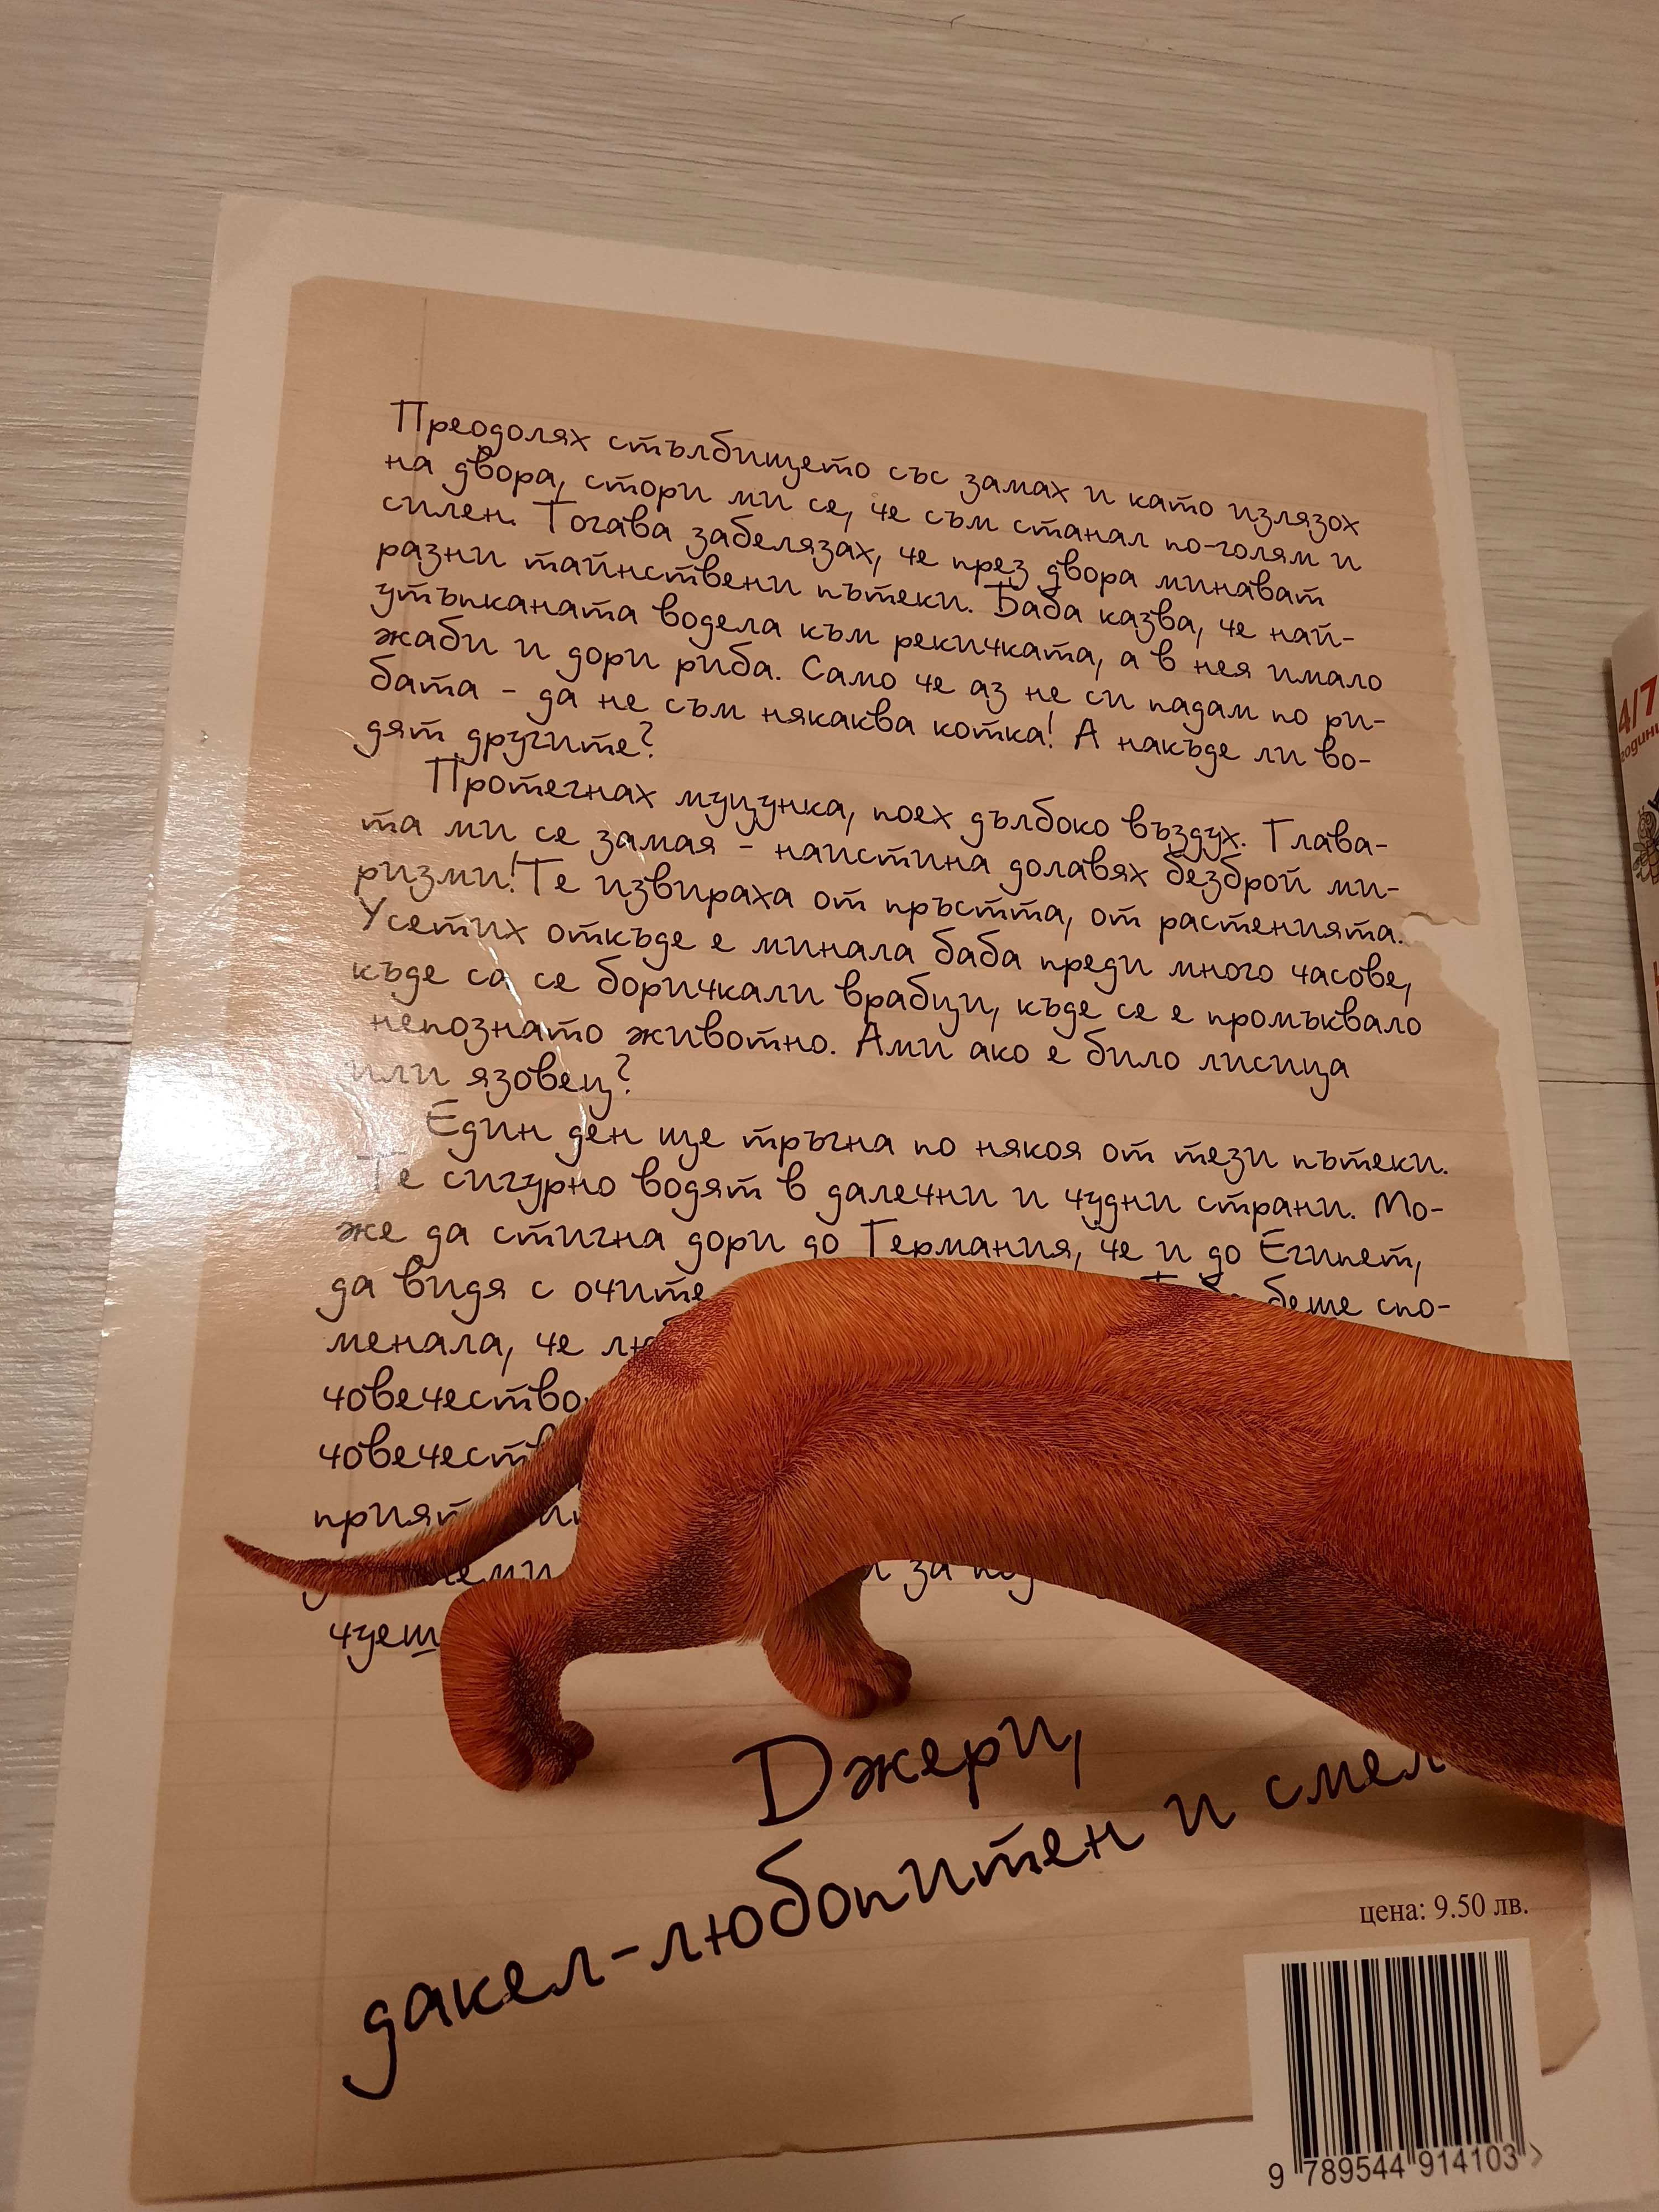 Преодолях стълбището със замах и като излязох
на двора, стори ми се, че съм станал по-голям и
силен. Тогава забелязах, че през двора минават
разни тайнствени пътеки. Баба казва, че най-
утъпканата водела към рекичката, а в нея имало
жаби и дори риба. Само че аз не си падам по ри-
бата - да не съм някаква котка! А накъде ли во-
дят другите?
Протегнах муцунка, поех дълбоко въздух. Глава-
та ми се замая - наистина долавях безброй ми-
ризми! Те извираха от пръстта, от растенията.
Усетих откъде е минала баба преди много часове,
къде са се боричкали врабци, къде се е промъквало
непознато животно. Ами ако е било лисица
или язовец?
Един ден ще тръгна по някоя от тези пътеки.
Те сигурно водят в далечни и чудни страни. Мо-
же да стигна дори до Германия, че и до Египет,
да видя с очите беше спо-
менала, че
човечество
за
чуеш
Джери,
дакел-любопитен и смел
цена: 9.50 лв.
9 789544 914103 >
4/7